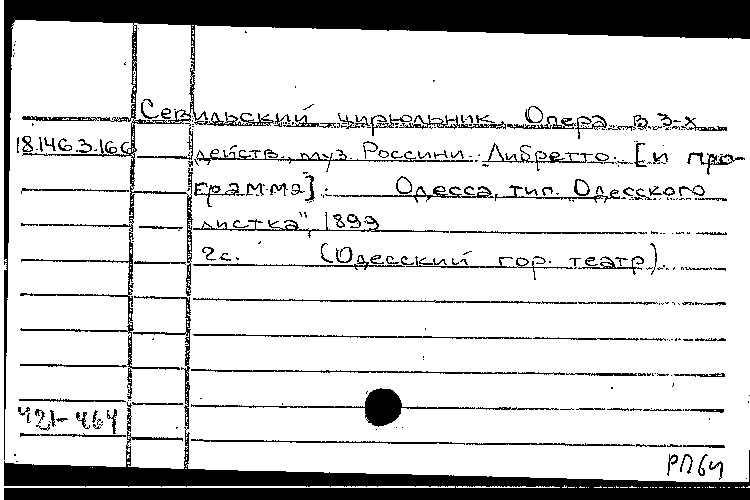 Севильский цирюльник. Опера в 3-х
18.146.3.166 действ., муз. Россини. Либретто. [и про-
грамма]. Одесса, тип. Одесского
листка", 1899
2с. (Одесский гор. театр).
421-464
РП64